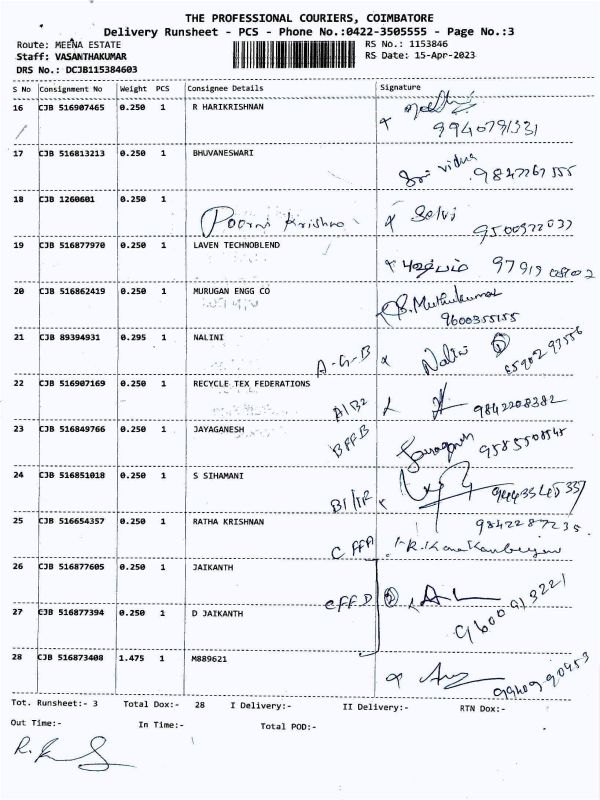 THE PROFESSIONAL COURIERS, COIMBATORE
Delivery Runsheet - PCS - Phone No.:0422-3505555 - Page No.:3
Route: MEENA ESTATE RS No.: 1153846
Staff: VASANTHAKUMAR RS Date: 15-Apr-2023
DRS No.: DCJB115384603
S No Consignment No Weight PCS Consignee Details Signature
16 CJB 516907465 0.250 1 R HARIKRISHNAN
9940791331
17 CJB 516813213 0.250 1 BHUVANESWARI
Sri vidya
18 CJB 1260601 0.250 1
Poorni Krishna x Selvi
19 CJB 516877970 0.250 1 LAVEN TECHNOBLEND
20 CJB 516862419 0.250 1 MURUGAN ENGG CO
B. Muthukumar
9600355155
21 CJB 89394931 0.295 1 NALINI
A-G-B x Nalini
22 CJB 516907169 0.250 1 RECYCLE TEX FEDERATIONS
A1B2 9842208382
23 CJB 516849766 0.250 1 JAYAGANESH
BFFB
24 CJB 516851018 0.250 1 S SIHAMANI
25 CJB 516654357 0.250 1 RATHA KRISHNAN
9842287235
C FFA
26 CJB 516877605 0.250 1 JAIKANTH
CFFD
27 CJB 516877394 0.250 1 D JAIKANTH
9600913221
28 CJB 516873408 1.475 1 M889621
Tot. Runsheet:- 3 Total Dox:- 28 I Delivery:- II Delivery:- RTN Dox:-
Out Time:- In Time:- Total POD:-